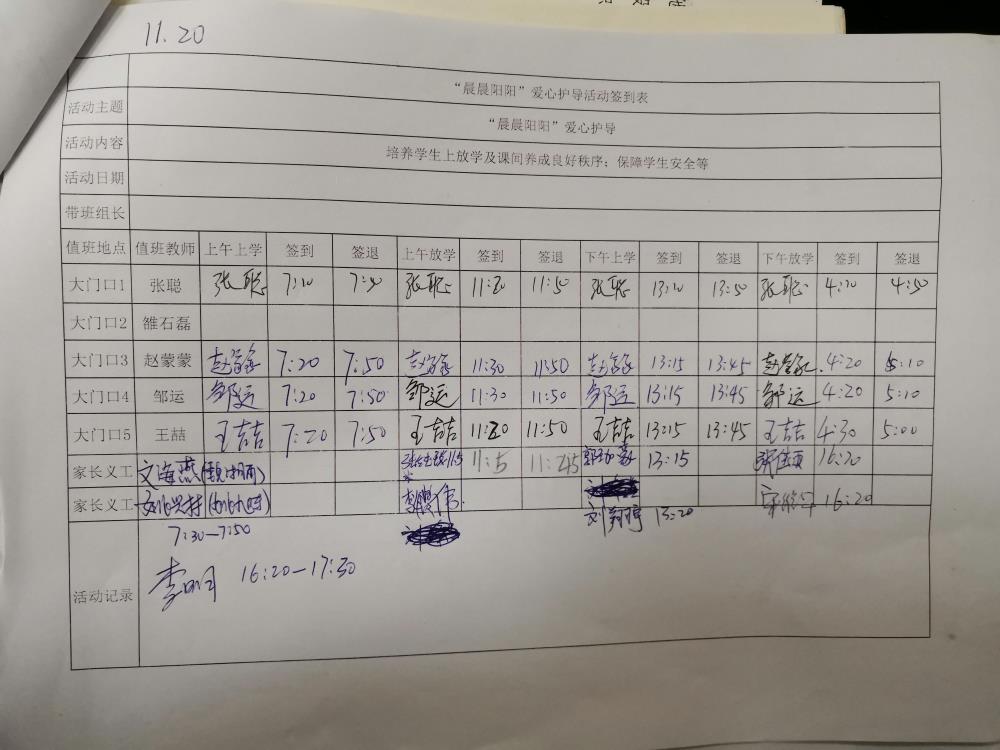 11.20
“晨晨阳阳”爱心护导活动签到表
活动主题 “晨晨阳阳”爱心护导
活动内容 培养学生上放学及课间养成良好秩序；保障学生安全等
活动日期
带班组长
值班地点 值班教师 上午上学 签到 签退 上午放学 签到 签退 下午上学 签到 签退 下午放学 签到 签退
大门口1 张聪 张聪 7:20 张聪 11:20 11:50 张聪 13:20 13:50 张聪 4:20 4:50
大门口2 雒石磊
大门口3 赵蒙蒙 赵蒙蒙 7:20 7:50 赵蒙蒙 11:30 11:50 赵蒙蒙 13:15 13:45 赵蒙蒙 4:20 5:10
大门口4 邹运 邹运 7:20 7:50 邹运 11:30 11:50 邹运 13:15 13:45 邹运 4:20 5:10
大门口5 王喆 王喆 7:20 7:50 王喆 11:20 11:50 王喆 13:15 13:45 王喆 4:30 5:00
家长义工 文海燕 11:15 13:15 16:20
家长义工 16:20
7:30—7:50 13:20
活动记录 李明 16:20—17:30